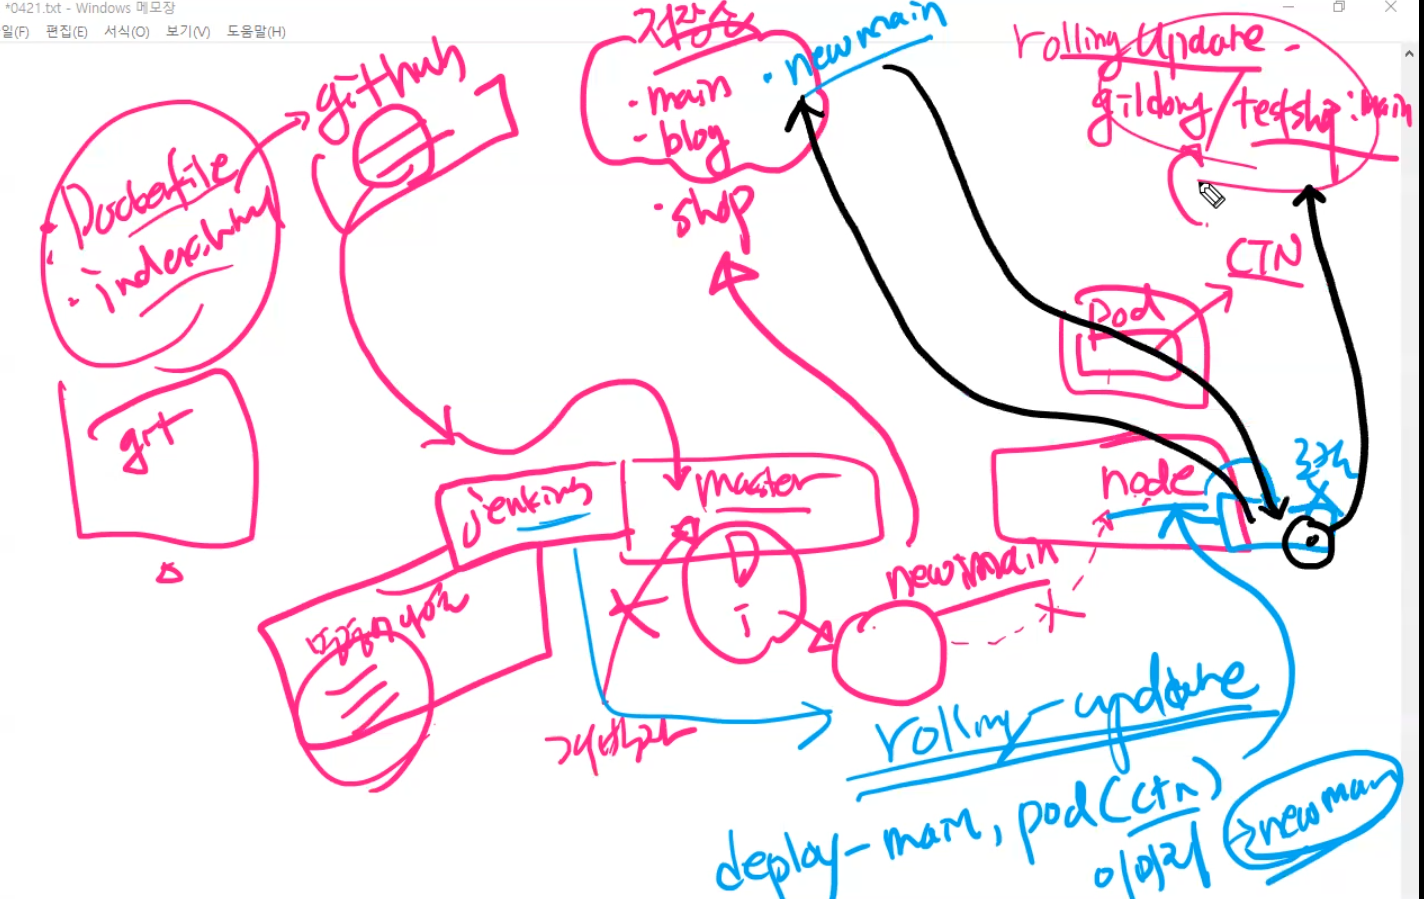 *0421.txt - Windows 메모장
일(F) 편집(E) 서식(O) 보기(V) 도움말(H)
github
저장소
· main
· blog
· shop
· newmain
rolling update
gildong/testshop:main
· Dockerfile
· index.html
git
CTN
pod
node
jenkins
master
D
i
newmain
개발자
rolling-update
deploy-main, pod(ctn)
이미지
→newmain